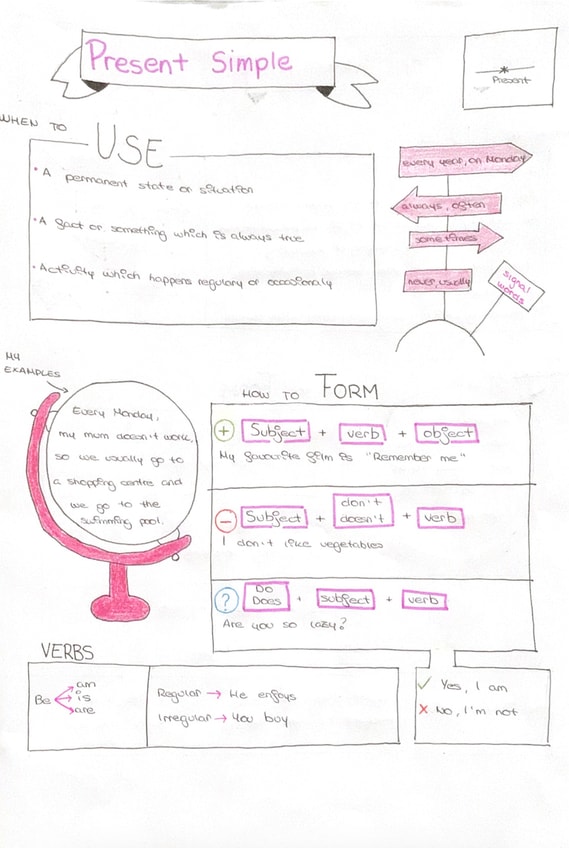 Present Simple
Present
WHEN TO
USE
A permanent state or situation
A fact or something which is always true
Activity which happens regulary or occasionaly
every year, on Monday
always, often
sometimes
never, usually
signal
words
MY
EXAMPLES
Every Monday,
my mum doesn't work,
so we usually go to
a shopping centre and
we go to the
swimming pool.
HOW TO FORM
+ Subject + verb + object
My favourite film is "Remember me"
- Subject + don't doesn't + verb
I don't like vegetables
? Do Does + subject + verb
Are you so lazy?
✓ Yes, I am
✗ No, I'm not
VERBS
Be → am
is
are
Regular → He enjoys
Irregular → You buy